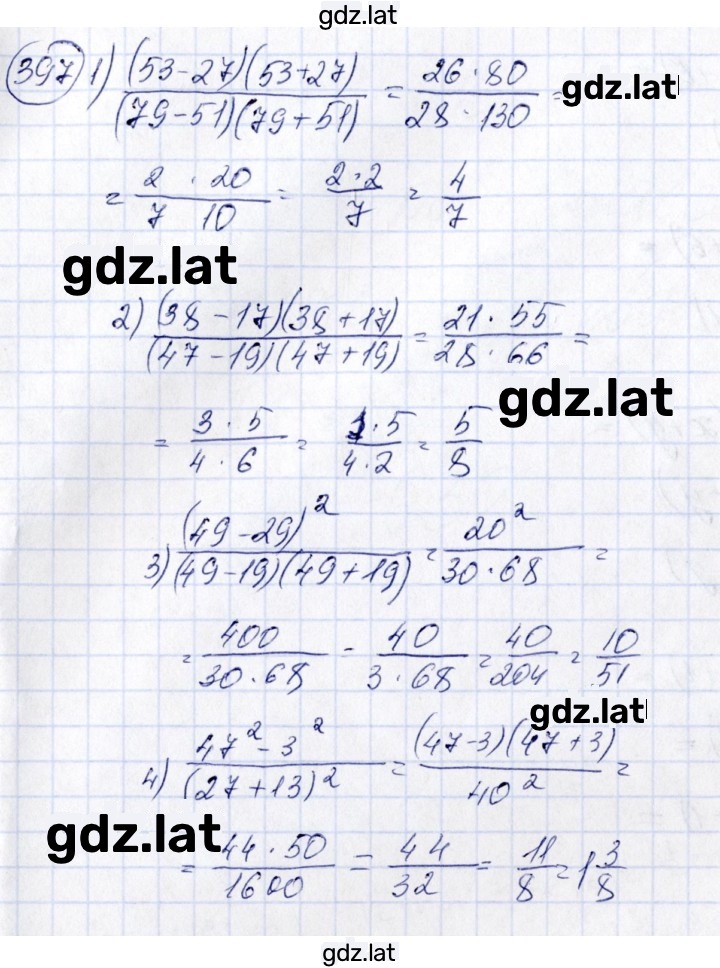 gdz.lat
397 1) (53-27)(53+27) / (79-51)(79+51) = 26·80 / 28·130 =
gdz.lat
= 2 · 20 / 7 10 = 2·2 / 7 = 4/7
gdz.lat
2) (38-17)(38+17) / (47-19)(47+19) = 21·55 / 28·66 =
gdz.lat
= 3·5 / 4·6 = 1·5 / 4·2 = 5/8
3) (49-29)² / (49-19)(49+19) = 20² / 30·68 =
= 400 / 30·68 - 40 / 3·68 = 40/204 = 10/51
gdz.lat
4) 47²-3² / (27+13)² = (47-3)(47+3) / 40² =
gdz.lat
= 44·50 / 1600 = 44/32 = 11/8 = 1 3/8
gdz.lat